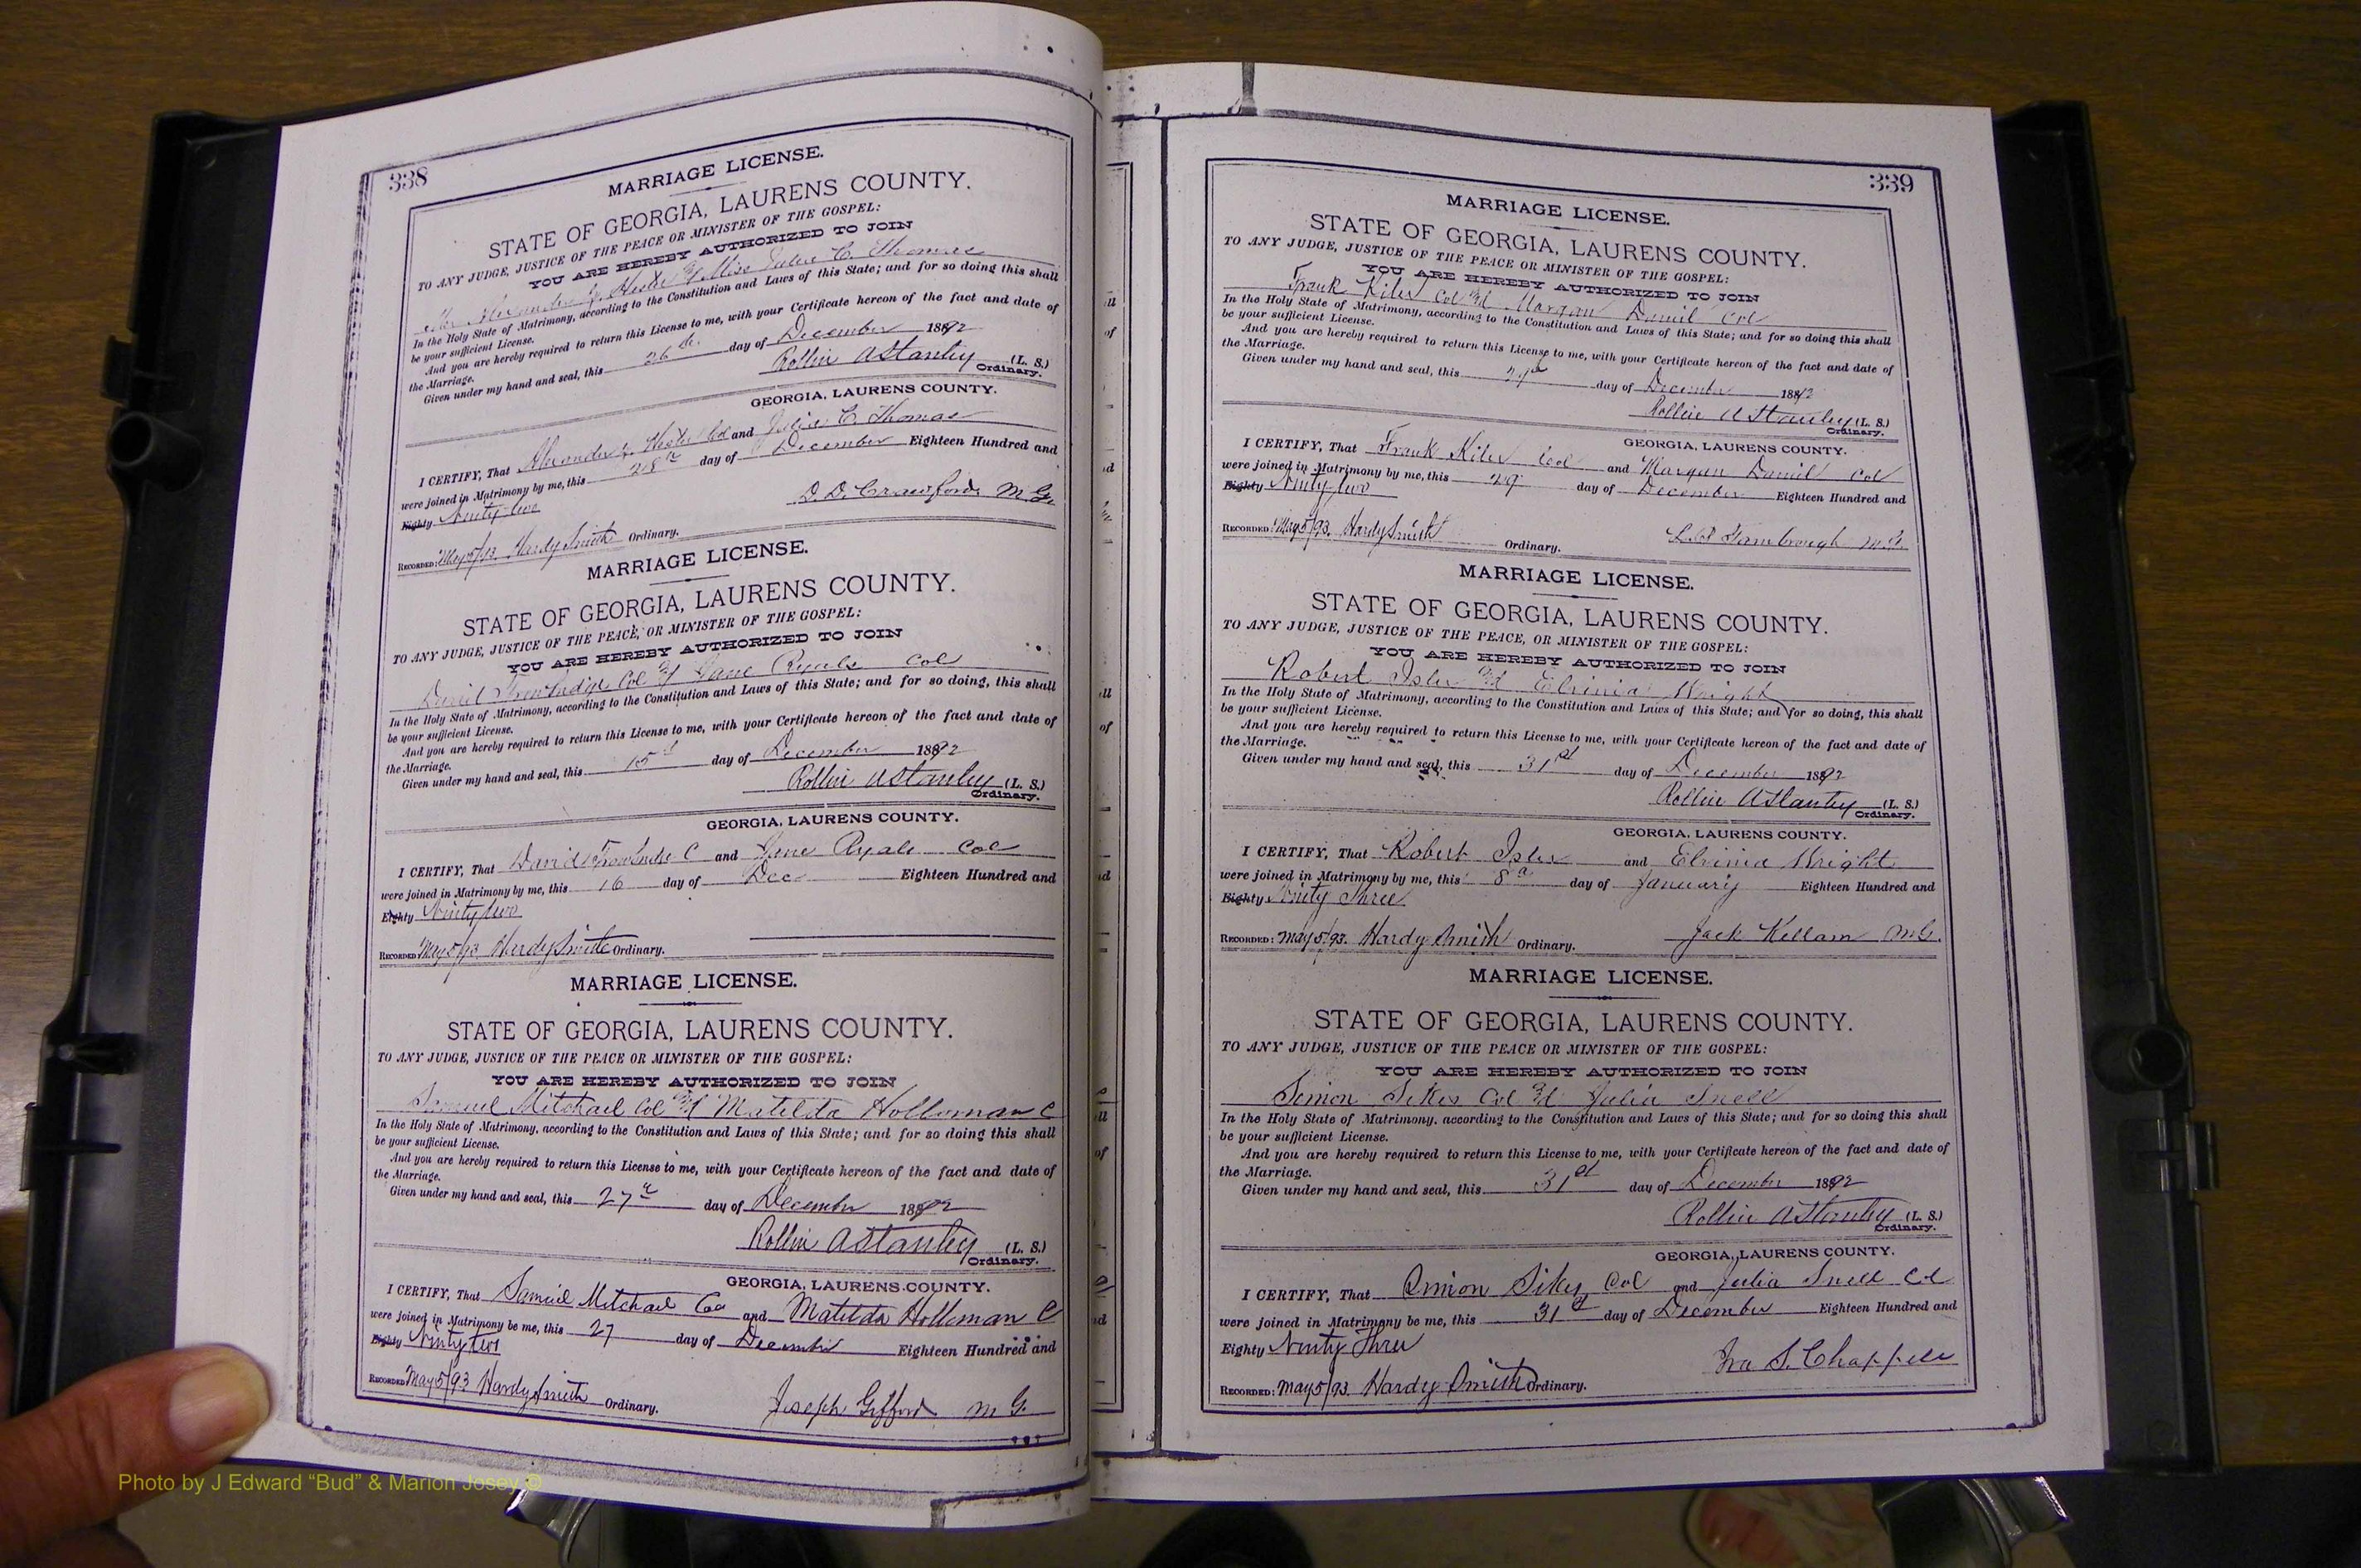 338
MARRIAGE LICENSE.
STATE OF GEORGIA, LAURENS COUNTY.
TO ANY JUDGE, JUSTICE OF THE PEACE OR MINISTER OF THE GOSPEL:
YOU ARE HEREBY AUTHORIZED TO JOIN
Miss C. Thomas
In the Holy State of Matrimony, according to the Constitution and Laws of this State; and for so doing this shall
be your sufficient License.
And you are hereby required to return this License to me, with your Certificate hereon of the fact and date of
the Marriage.
Given under my hand and seal, this 26th day of December 1892
Rollin A Stanley (L. S.)
Ordinary.
GEORGIA, LAURENS COUNTY.
I CERTIFY, That Alexander and C. Thomas
were joined in Matrimony by me, this 28th day of December Eighteen Hundred and
Eighty Ninety two
D. D. Crawford M G.
RECORDED: May 5/93. Hardy Smith Ordinary.
MARRIAGE LICENSE.
STATE OF GEORGIA, LAURENS COUNTY.
TO ANY JUDGE, JUSTICE OF THE PEACE, OR MINISTER OF THE GOSPEL:
YOU ARE HEREBY AUTHORIZED TO JOIN
Col Jane Ryals Col
In the Holy State of Matrimony, according to the Constitution and Laws of this State; and for so doing, this shall
be your sufficient License.
And you are hereby required to return this License to me, with your Certificate hereon of the fact and date of
the Marriage.
Given under my hand and seal, this 15th day of December 1892
Rollin A Stanley (L. S.)
Ordinary.
GEORGIA, LAURENS COUNTY.
I CERTIFY, That David C and Jane Ryals Col
were joined in Matrimony by me, this 16 day of Dec Eighteen Hundred and
Eighty Ninety two
RECORDED May 5/93 Hardy Smith Ordinary.
MARRIAGE LICENSE.
STATE OF GEORGIA, LAURENS COUNTY.
TO ANY JUDGE, JUSTICE OF THE PEACE OR MINISTER OF THE GOSPEL:
YOU ARE HEREBY AUTHORIZED TO JOIN
Samuel Mitchael Col & Matilda Holloman C
In the Holy State of Matrimony, according to the Constitution and Laws of this State; and for so doing this shall
be your sufficient License.
And you are hereby required to return this License to me, with your Certificate hereon of the fact and date of
the Marriage.
Given under my hand and seal, this 27th day of December 1892
Rollin A Stanley (L. S.)
Ordinary.
GEORGIA, LAURENS COUNTY.
I CERTIFY, That Samuel Mitchael and Matilda Holloman C
were joined in Matrimony be me, this 27 day of December Eighteen Hundred and
Eighty Ninety two
RECORDED May 5/93 Hardy Smith Ordinary.
Joseph Gifford M G.
339
MARRIAGE LICENSE.
STATE OF GEORGIA, LAURENS COUNTY.
TO ANY JUDGE, JUSTICE OF THE PEACE OR MINISTER OF THE GOSPEL:
YOU ARE HEREBY AUTHORIZED TO JOIN
Frank Col Daniel Col
In the Holy State of Matrimony, according to the Constitution and Laws of this State; and for so doing this shall
be your sufficient License.
And you are hereby required to return this License to me, with your Certificate hereon of the fact and date of
the Marriage.
Given under my hand and seal, this day of December 1892
Rollin A Stanley (L. S.)
Ordinary.
GEORGIA, LAURENS COUNTY.
I CERTIFY, That Frank Col and Daniel Col
were joined in Matrimony by me, this 29 day of December Eighteen Hundred and
Eighty Ninety two
RECORDED: May 5/93. Hardy Smith Ordinary.
MARRIAGE LICENSE.
STATE OF GEORGIA, LAURENS COUNTY.
TO ANY JUDGE, JUSTICE OF THE PEACE, OR MINISTER OF THE GOSPEL:
YOU ARE HEREBY AUTHORIZED TO JOIN
Robert Isler & Elvinia Wright
In the Holy State of Matrimony, according to the Constitution and Laws of this State; and for so doing, this shall
be your sufficient License.
And you are hereby required to return this License to me, with your Certificate hereon of the fact and date of
the Marriage.
Given under my hand and seal, this 31st day of December 1892
Rollin A Stanley (L. S.)
Ordinary.
GEORGIA, LAURENS COUNTY.
I CERTIFY, That Robert Isler and Elvinia Wright
were joined in Matrimony by me, this 8th day of January Eighteen Hundred and
Eighty Ninety Three
RECORDED: May 5/93. Hardy Smith Ordinary.
Jack Kellam M.G.
MARRIAGE LICENSE.
STATE OF GEORGIA, LAURENS COUNTY.
TO ANY JUDGE, JUSTICE OF THE PEACE OR MINISTER OF THE GOSPEL:
YOU ARE HEREBY AUTHORIZED TO JOIN
Simon Sikes Col & Julia Snell
In the Holy State of Matrimony, according to the Constitution and Laws of this State; and for so doing this shall
be your sufficient License.
And you are hereby required to return this License to me, with your Certificate hereon of the fact and date of
the Marriage.
Given under my hand and seal, this 31st day of December 1892
Rollin A Stanley (L. S.)
Ordinary.
GEORGIA, LAURENS COUNTY.
I CERTIFY, That Simon Sikes Col and Julia Snell Col
were joined in Matrimony be me, this 31st day of December Eighteen Hundred and
Eighty Ninety Three
Ira S. Chappell
RECORDED: May 5/93. Hardy Smith Ordinary.
Photo by J Edward “Bud” & Marion Josey ©